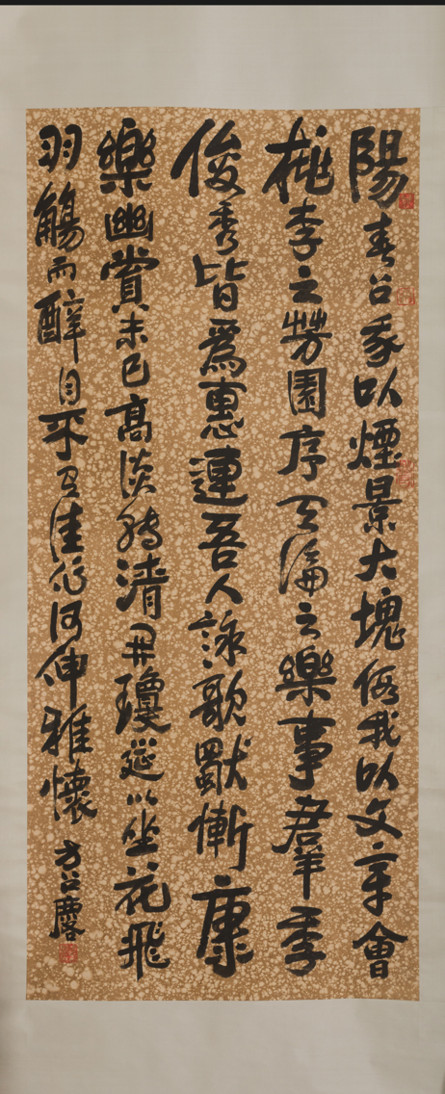 陽春召我以煙景大塊假我以文章會
桃李之芳園序天倫之樂事羣季
俊秀皆爲惠連吾人詠歌獨慚康
樂幽賞未已高談轉清開瓊筵以坐花飛
羽觴而醉月不有佳作何伸雅懷 方召麐